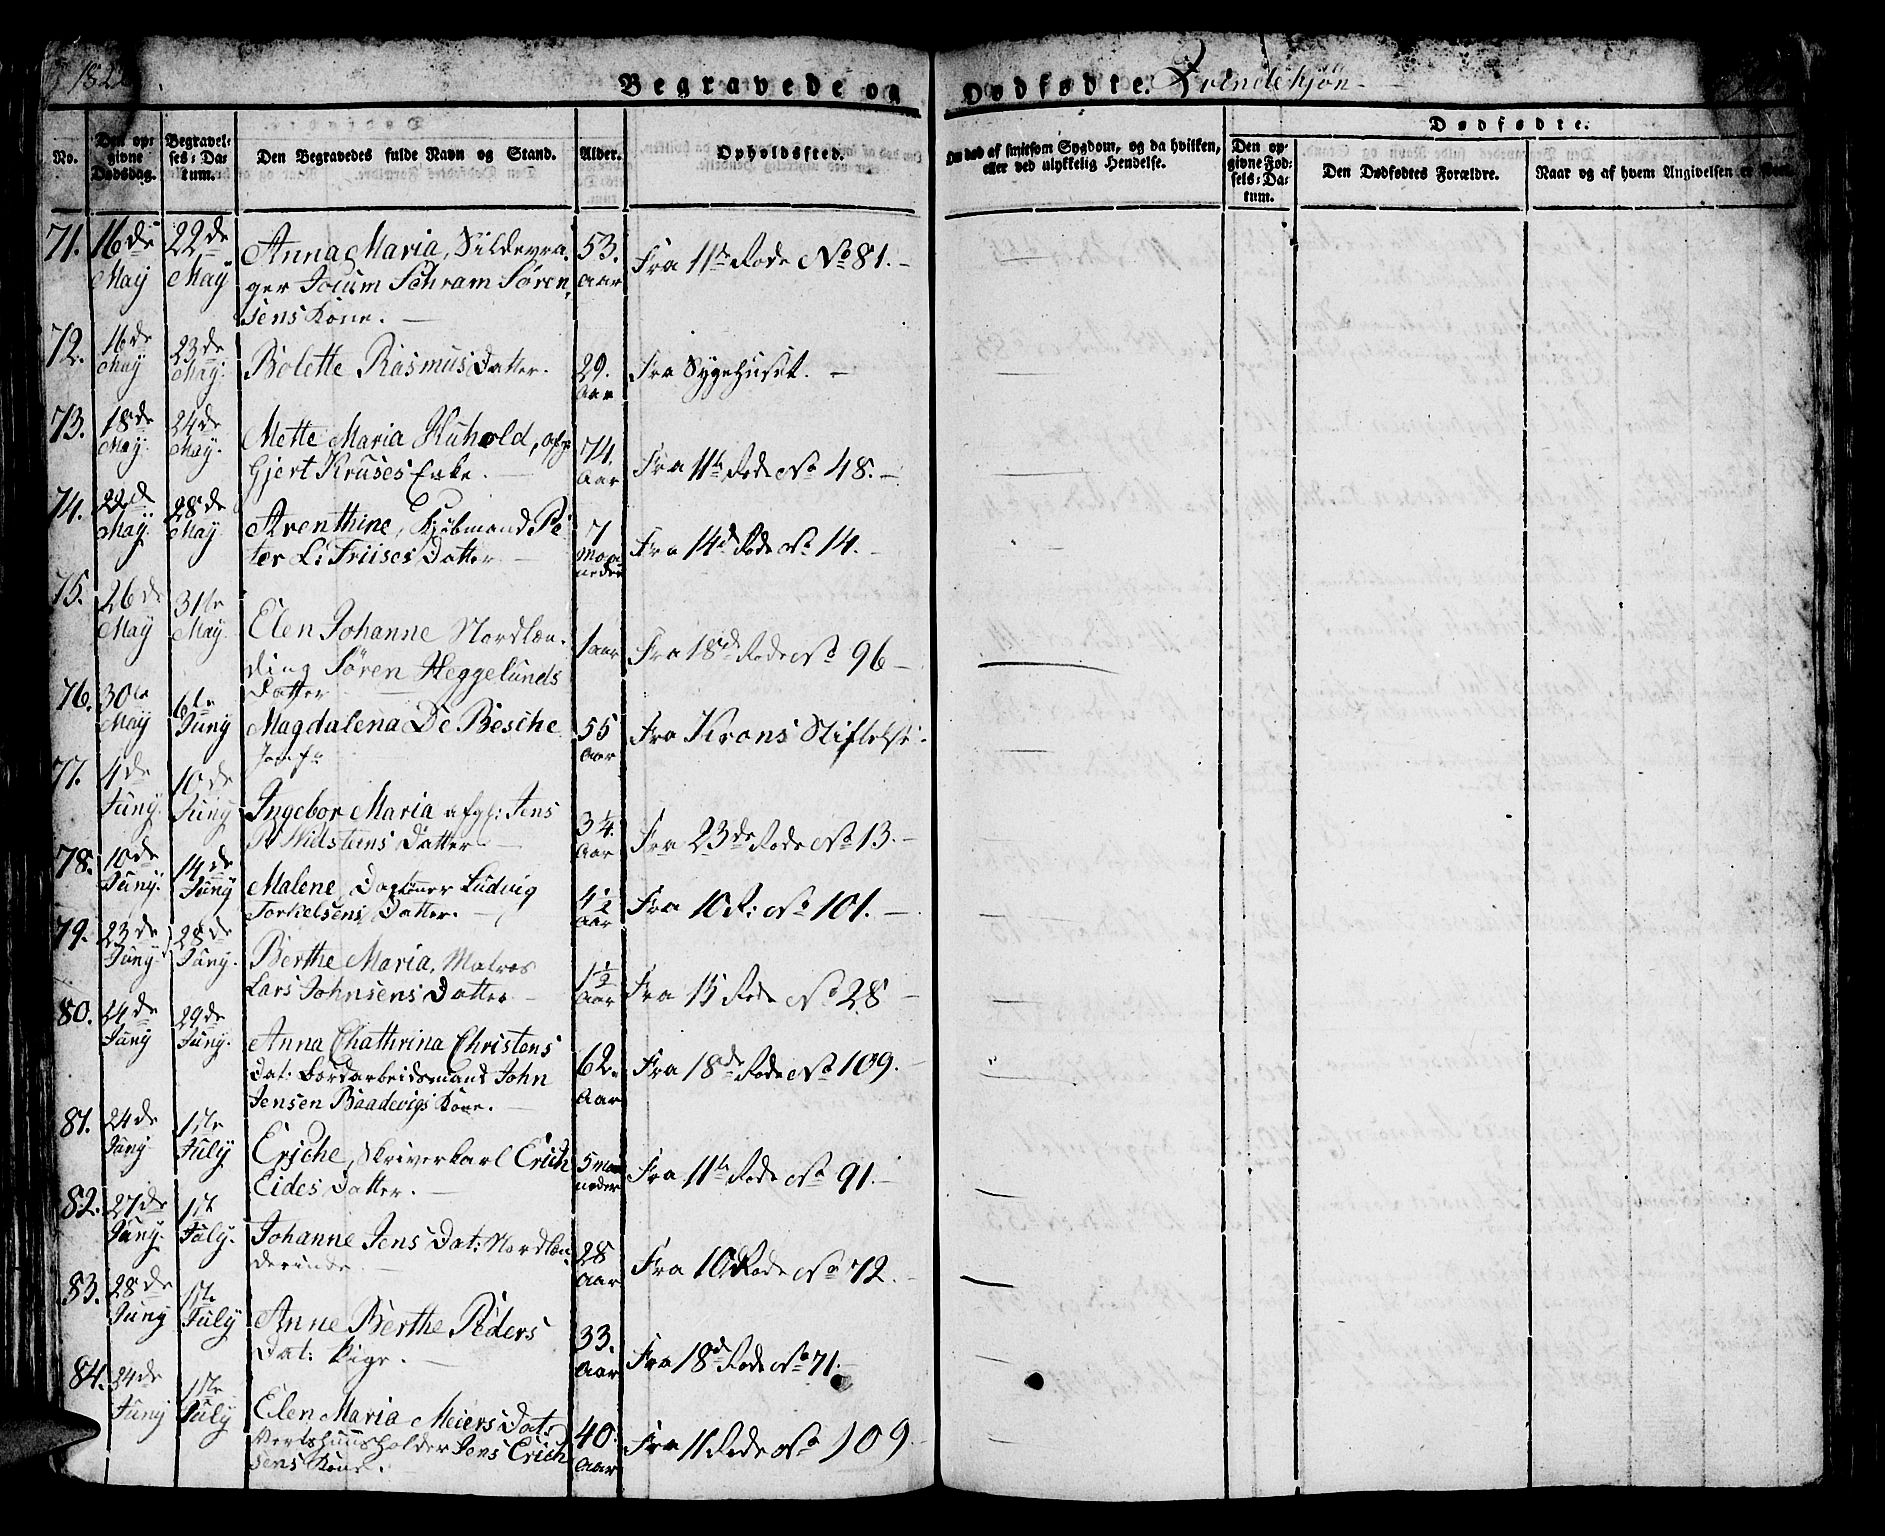 182
Begravede og Dødfødte. Qvindekjøn
No.
Den opgivne Dødsdag.
Begravelses-Datum.
Den Begravedes fulde Navn og Stand.
Alder.
Opholdssted.
Om død af smitsom Sygdom, og da hvilken, eller ved ulykkelig Hendelse.
Dødfødte.
Den opgivne Fødsels-Datum.
Den Dødfødtes Forældre.
Naar og af hvem Angivelsen er skeet.
71. 16de May 22de May
Anna Maria, Sildevra-
ger Jocum Schram Søren-
sens Kone. —
53. Aar
Fra 11te Rode No 81. —
72. 16de May 23de May.
Bolette RasmusDatter.
29. Aar
Fra Sygehuset. —
73. 18de May. 24de May.
Mette Maria Kuhold, afg:
Gjert Kruses Enke. —
74. Aar
Fra 11te Rode No 48. —
74. 22de May. 28de May
Arenthine, Kjøbmand Pe-
ter L: Friises Datter —
7 Maaneder
Fra 14de Rode No 14. —
75. 26de May 31te May.
Elen Johanne Nordlæn-
ding Sören Heggelunds
Datter
1 aar
Fra 18de Rode No 96 —
76. 30te May 6te Juny
Magdalena De Besche
Jomfr
55 Aar
Fra Krans Stiftelse.
77. 4de Juny. 10de Juny
Ingebor Maria afg: Jens
P Nielstens Datter. —
3 1/4. Aar
Fra 23de Rode No 13. —
78. 10de Juny. 14de Juny
Malene, Dagl Ludvig
Torkelsens Datter. —
4 1/2 Aar
Fra 10 R: No 101. —
79. 23de Juny. 28de Juny.
Berthe Maria, Matros
Lars Johnsens Datter —
1 1/2 Aar
Fra 15 Rode No 28 —
80. 24de Juny 29de Juny.
Anna Chathrina Christens
Dat: Bordarbeidsmand John
Jensen Baadevigs Kone. —
62. Aar
Fra 18de Rode No 109. —
81. 24de Juny 1ste July
Eriche, Skriverkarl Erich
Eides Datter. —
5 maaneder
Fra 11te Rode No 91. —
82. 27de Juny. 1ste July.
Johanne Jens Dat: Nordlæn-
derinde. —
28 Aar
Fra 10de Rode No 72. —
83. 28de Juny 1ste July
Anne Berthe Peders
Dat: Pige. —
33. Aar
Fra 18de Rode No 71.
84. 24de Juny 1ste July
Elen Maria Meiers Dat:
Vertshuusholder Jens Erich
sens Kone.
40. Aar
Fra 11 Rode No 109